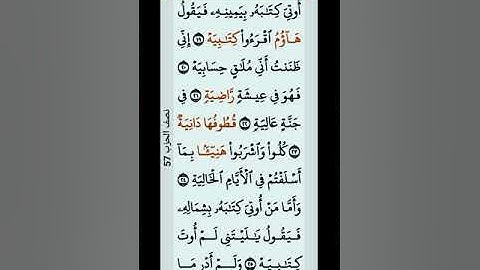 أُوتِيَ كِتَٰبَهُۥ بِيَمِينِهِۦ فَيَقُولُ
هَآؤُمُ ٱقْرَءُوا۟ كِتَٰبِيَهْ ١٩ إِنِّي
ظَنَنتُ أَنِّي مُلَٰقٍ حِسَابِيَهْ ٢٠
فَهُوَ فِي عِيشَةٍ رَّاضِيَةٍ ٢١ فِي
جَنَّةٍ عَالِيَةٍ ٢٢ قُطُوفُهَا دَانِيَةٌ
٢٣ كُلُوا۟ وَٱشْرَبُوا۟ هَنِيٓـًٔۢا بِمَآ
أَسْلَفْتُمْ فِي ٱلْأَيَّامِ ٱلْخَالِيَةِ ٢٤
وَأَمَّا مَنْ أُوتِيَ كِتَٰبَهُۥ بِشِمَالِهِۦ
فَيَقُولُ يَٰلَيْتَنِي لَمْ أُوتَ
كِتَٰبِيَهْ ٢٥ وَلَمْ أَدْرِ مَا
نصف الحزب 57